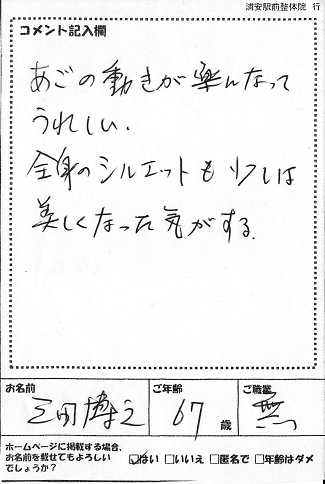 浦安駅前整体院 行
コメント記入欄
あごの動きが楽んなって
うれしい.
全身のシルエットも少しは
美しくなった気がする.
お名前 ご年齢 ご職業
三田博之 67 歳 無
ホームページに掲載する場合、
お名前を載せてもよろしい
でしょうか?
☑はい □いいえ □匿名で □年齢はダメ